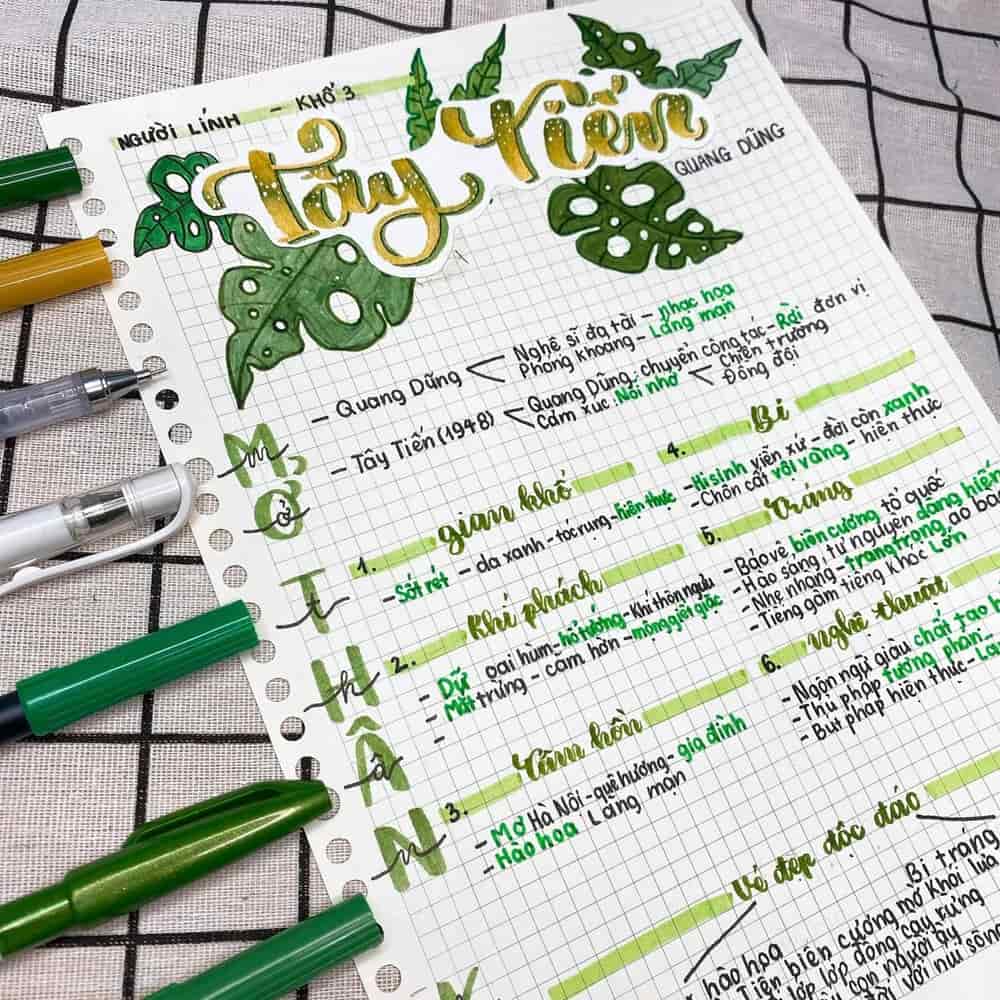 NGƯỜI LÍNH - KHỔ 3
Tây Tiến
QUANG DŨNG
- Quang Dũng
Nghệ sĩ đa tài - nhạc họa
Phong khoáng - Lãng mạn
- Tây Tiến (1948)
Quang Dũng: chuyển công tác - Rời đơn vị
Cảm xúc: Nỗi nhớ
Chiến trường
Đồng đội
MỞ THÂN
mở thân
1. gian khổ
- Sốt rét - da xanh - tóc rụng - hiện thực
2. Khí phách
- Dữ oai hùm - hổ tướng - Khí thôn ngưu
- Mắt trừng - căm hờn - mộng giết giặc
-
3. Tâm hồn
- Mơ Hà Nội - quê hương - gia đình
- Hào hoa Lãng mạn
4. Bi
- Hi sinh viễn xứ - đời còn xanh
- Chôn cất vội vàng - hiện thực
5. Tráng
- Bảo vệ biên cương tổ quốc
- Hào sảng, tự nguyện dâng hiến
- Nhẹ nhàng - trang trọng áo bào
- Tiếng gầm tiếng khóc Lớn
6. Nghệ thuật
- Ngôn ngữ giàu chất tạo
- Thủ pháp tương phản -
- Bút pháp hiện thực -
Vẻ đẹp độc đáo
hào hoa
biên cương mở khói lửa
lớp lớp đồng cay rưng
con người ấy
với núi sông
Bi tráng